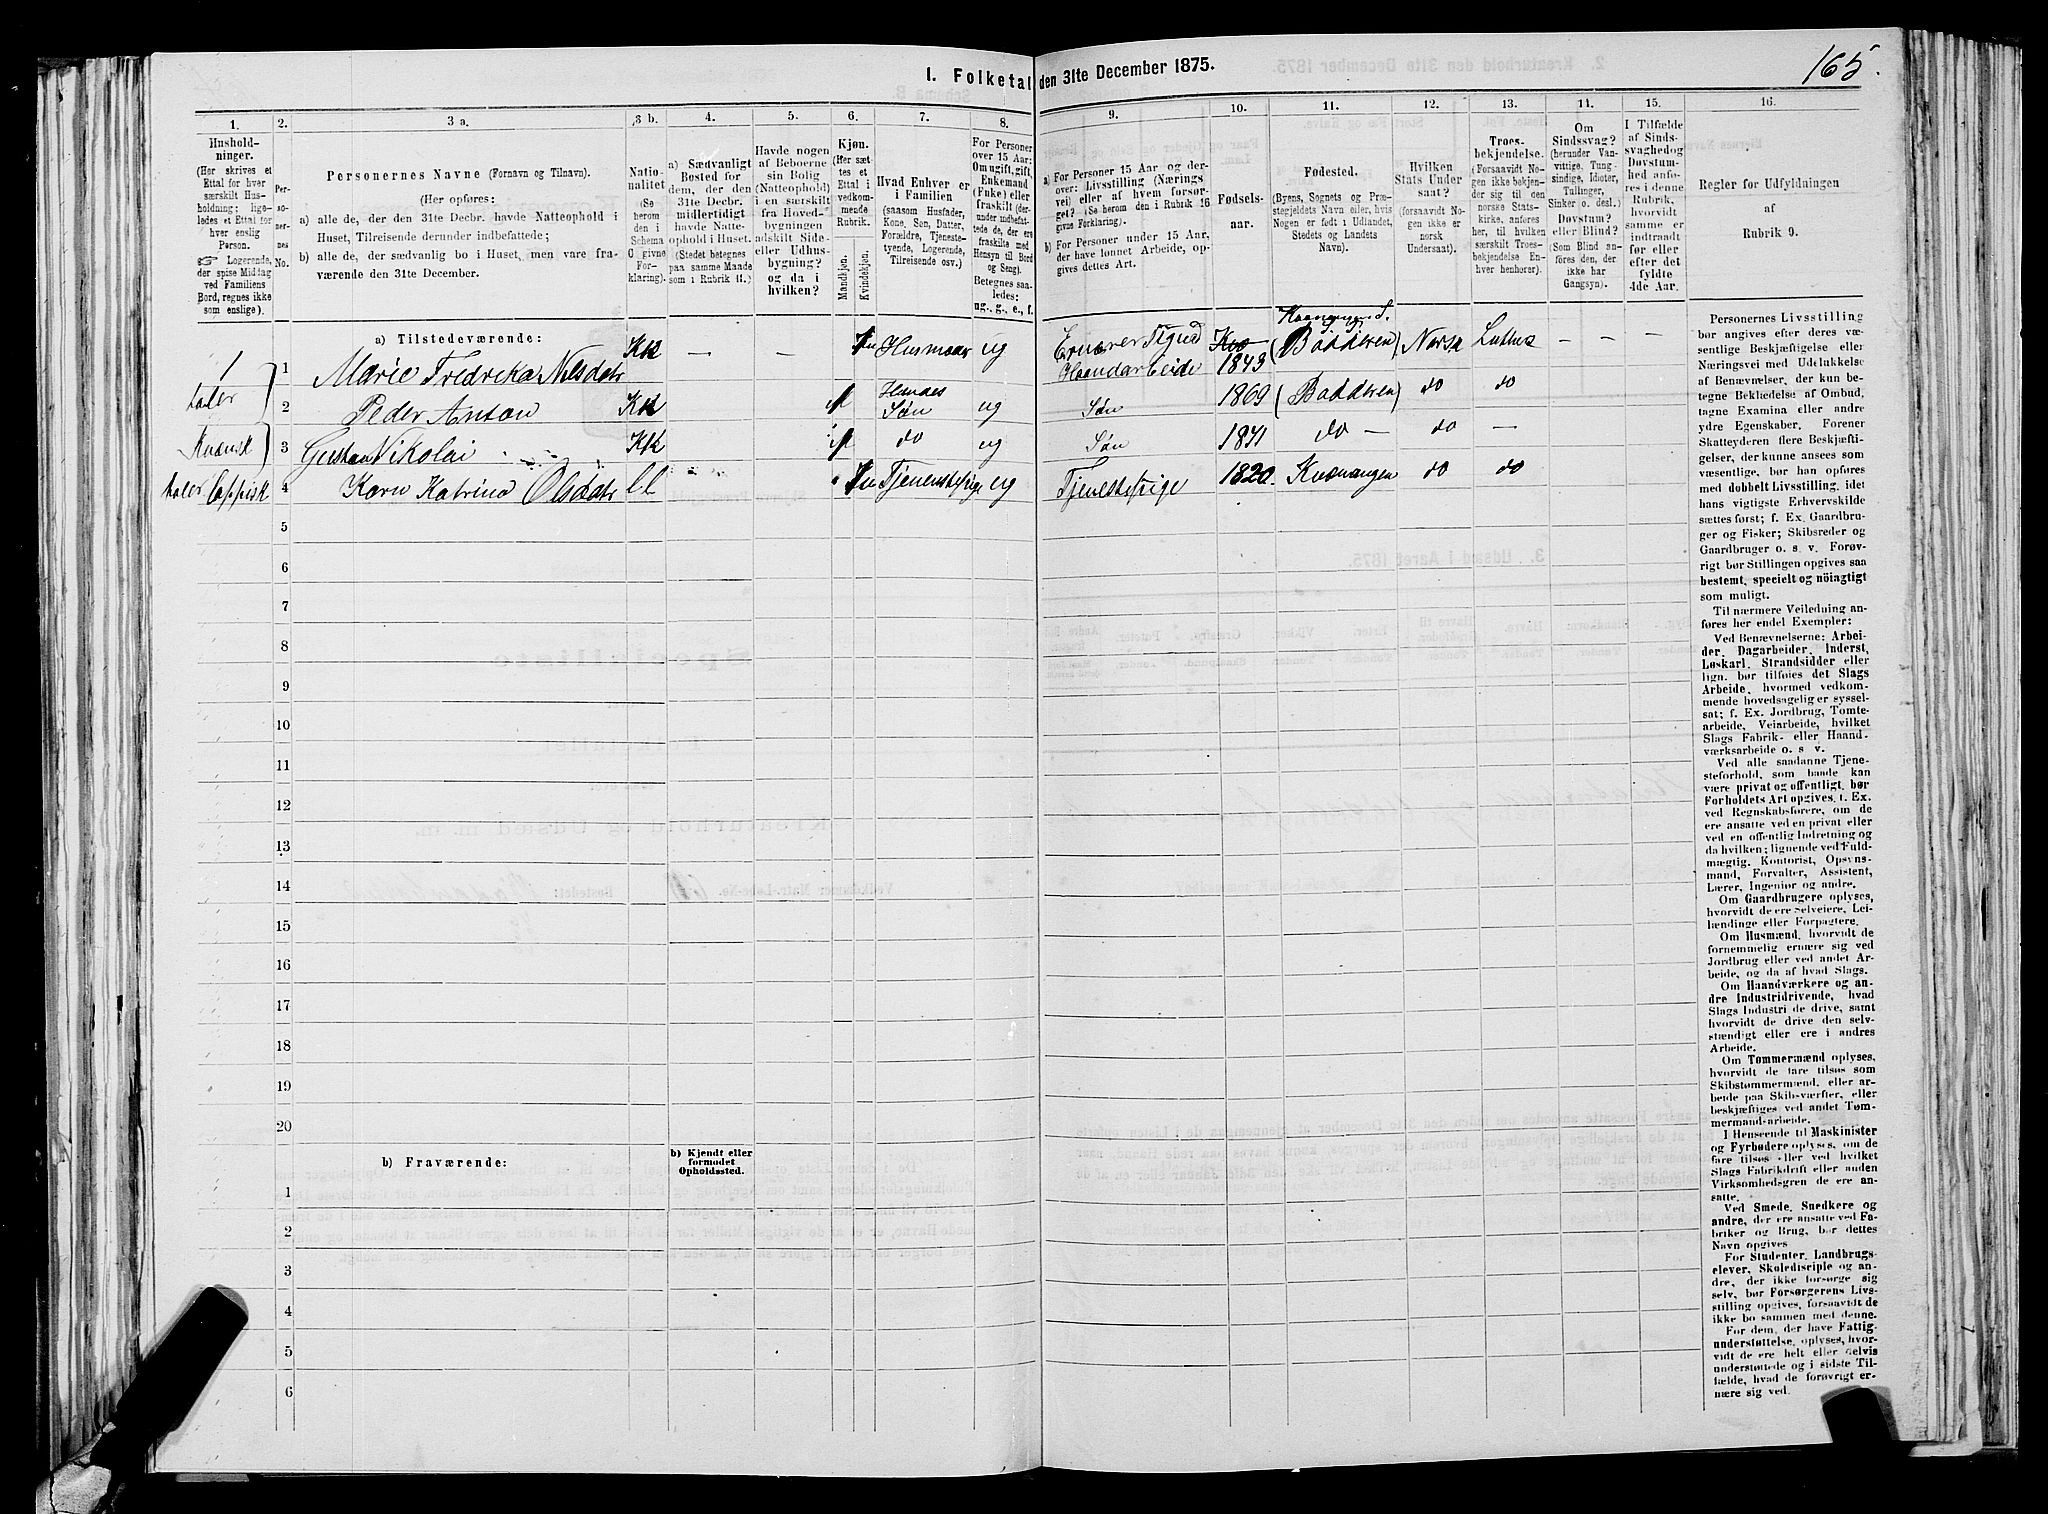 165.
1. Folketal den 31te December 1875.
1.
2.
3 a.
3 b.
4.
5.
6.
7.
8.
9.
10.
11.
12.
13.
14.
15.
16.
Husholdninger.
(Her skrives et Ettal for hver særskilt Husholdning; ligeledes et Ettal for hver enslig Person.
☞ Logerende, der spise Middag ved Familiens Bord, regnes ikke som enslige).
Personernes No.
Personernes Navne (Fornavn og Tilnavn).
(Her opføres:
a) alle de, der den 31te Decbr. havde Natteophold i Huset, Tilreisende derunder indbefattede;
b) alle de, der sædvanlig bo i Huset, men vare fraværende den 31te December.
Nationalitet
(Se herom den i Schema C givne Forklaring).
a) Sædvanligt Bosted for dem, der den 31te Decbr. midlertidigt havde Natteophold i Huset.
(Stedet betegnes paa samme Maade som i Rubrik 11.)
Havde nogen af Beboerne sin Bolig (Natteophold) i en særskilt fra Hovedbygningen adskilt Side- eller Udhusbygning? og da i hvilken?
Kjøn.
(Her sættes et Ettal i vedkommende Rubrik.
Mandkjøn.
Kvindekjøn.
Hvad Enhver er i Familien
(saasom Husfader, Kone, Søn, Datter, Forældre, Tjenestetyende, Logerende, Tilreisende osv.)
For Personer over 15 Aar: Om ugift, gift, Enkemand (Enke) eller fraskilt (derunder indbefattede de, der ere fraskilte med Hensyn til Bord og Seng).
Betegnes saaledes: ug., g., e., f.
a) For Personer 15 Aar og derover: Livsstilling (Næringsvei) eller af hvem forsørget? (Se herom den i Rubrik 16 givne Forklaring).
b) For Personer under 15 Aar, der have lønnet Arbeide, opgives dettes Art.
Fødselsaar.
Fødested.
(Byens, Sognets og Præstegjeldets Navn eller, hvis Nogen er født i Udlandet, Stedets og Landets Navn).
Hvilken Stats Undersaat?
(forsaavidt Nogen ikke er norsk Undersaat).
Troesbekjendelse.
(Forsaavidt Nogen ikke bekjender sig til Statskirke, anføres her, til hvilken særskilt Troesbekjendelse Enhver henhører).
Om Sindssvag?
(herunder Vanvittige, Tungsindige, Idioter, Tullinger, Sinker o. desl.)
Døvstum? eller Blind?
(Som Blind anføres den, der ikke har Gangsyn).
I Tilfælde af Sindssvaghed og Døvstumhed anføres i denne Rubrik, hvorvidt samme er indtraadt før eller efter det fyldte 4de Aar.
Regler for Udfyldningen af Rubrik 9.
a) Tilstedeværende:
1 1 Marie Fredreka Nilsdatr KK — — 1 Husmoder ug Ernærer sig ved Haandarbeide Kvo 1843 Kvænangen (Boddsen) Norsk Luthes — — —
taler 2 Peder Anton KK 1 Hendes Søn ug Søn 1869 (Boddsen) do do
Kvænsk 3 Gustav Nikolai KK 1 do ug Søn 1871 do — do —
taler Lappisk 4 Karn Katrina Olsdatr ll 1 Tjenestepige ug Tjenestepige 1820. Kvænangen do do
5
6
7
8
9
10
11
12
13
14
15
16
17
18
19
20
b) Fraværende:
b) Kjendt eller formodet Opholdssted.
1
2
3
4
5
6
Personernes Livsstilling
bør angives efter deres væ-
sentlige Beskjæftigelse eller
Næringsvei med Udelukkelse
af Benævnelser, der kun be-
tegne Beklædelse af Ombud,
tagne Examina eller andre
ydre Egenskaber. Forener
Skatteyderen flere Beskjæfti-
gelser, der kunne ansees som
væsentlige, bør han opføres
med dobbelt Livsstilling, idet
hans vigtigste Erhvervskilde
sættes først; f. Ex. Gaardbru-
ger og Fisker; Skibsreder og
Gaardbruger o. s. v. Forøv-
rigt bør Stillingen opgives saa
bestemt, specielt og nöiagtigt
som muligt.
Til nærmere Veiledning an-
føres her endel Exempler:
Ved Benævnelserne: Arbei-
der, Dagarbeider, Inderst,
Løskarl, Strandsidder eller
lign. bør tilføies det Slags
Arbeide, hvormed vedkom-
mende hovedsagelig er syssel-
sat; f. Ex. Jordbrug, Tomte-
arbeide, Veiarbeide, hvilket
Slags Fabrik- eller Haand-
værksarbeide o. s. v.
Ved alle saadanne Tjene-
steforhold, som baade kan
være privat og offentligt, bør
Forholdets Art opgives, t. Ex.
ved Regnskabsførere, om de
ere ansatte ved en privat eller
ved en offentlig Indretning og
da hvilken; lignende ved Fuld-
mægtig, Kontorist, Opsyns-
mand, Forvalter, Assistent,
Lærer, Ingeniør og andre.
Om Gaardbrugere oplyses,
hvorvidt de ere Selveiere, Lei-
lændinge eller Forpagtere.
Om Husmænd, hvorvidt de
fornemmelig ernære sig ved
Jordbrug eller ved andet Ar-
beide, og da af hvad Slags.
Om Haandværkere og an-
dre Industridrivende, hvad
Slags Industri de drive, samt
hvorvidt de drive den selv-
stændigt eller ere i andres
Arbeide.
Om Tømmermænd oplyses,
hvorvidt de fare tilsøs som
Skibstømmermænd, eller ar-
beide paa Skibsværfter, eller
beskjæftiges ved andet Tøm-
mermandarbeide.
I Henseende til Maskinister
og Fyrbødere oplyses, om de
fare tilsøs eller ved hvilket
Slags Fabrikdrift eller anden
Virksomhedsgren de ere an-
satte.
Ved Smede, Snedkere og
andre, der ere ansatte ved Fa-
briker og Brug, bør dettes
Navn opgives
For Studenter, Landbrugs-
elever, Skoledisciple og an-
dre, der ikke forsørge sig
selv, bør Forsørgerens Livs-
stilling opgives, forsaavidt de
ikke bo sammen med denne.
For dem, der have Fattig-
understøttelse, oplyses, hvor-
vidt de ere helt eller delvis
understøttede og i sidste Til-
fælde, hvad de forøvrigt er-
nære sig ved.